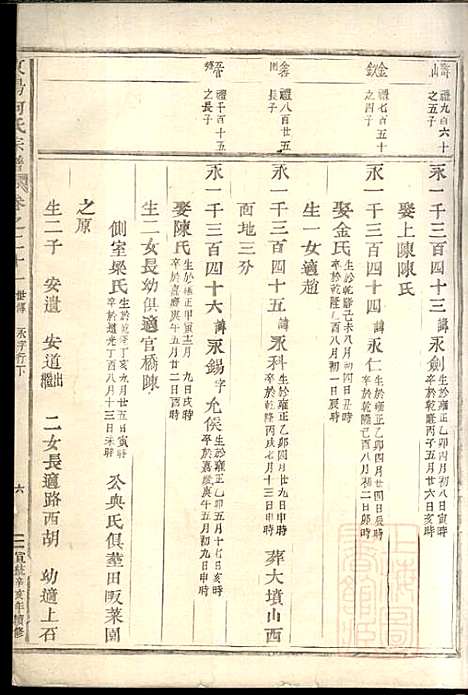 東陽何氏宗譜 卷之二十一 世傳 永字行下 六 宣統辛亥年續修
壽山 禮九百六十之五子
金欽 禮七百五十之四子
禮八百廿五長子
晉 禮千百十五之長子
永一千三百四十三 諱永劍 生於雍正乙卯四月初八日寅時 卒於乾隆丙子五月廿六日亥時
娶上陳陳氏
永一千三百四十四 諱永仁 生於雍正乙卯四月廿四日辰時 卒於乾隆己酉八月初二日卯時
娶金氏 生於乾隆己未八月初四日丑時 卒於乾隆 酉八月初一日辰時
生一女適趙
永一千三百四十五 諱永科 生於雍正乙卯四月廿九日申時 卒於乾隆丙戌七月十三日申時 葬大墳山西
面地三分
永一千三百四十六 諱永錫 字允侯 生於雍正乙卯五月十七日戌時 卒於嘉慶庚午五月初九日申時
娶陳氏 生於雍正甲寅十二月 九日戌時 卒於嘉慶庚午五月廿二日酉時
生二女長幼俱適官橋陳
側室梁氏 生於乾隆丁亥 月廿五日寅時 卒於道光丁酉八月十三日未時 公與氏俱塟田畈菜園
之原
生二子 安遺 安道 出繼 二女長適路西胡 幼適上石